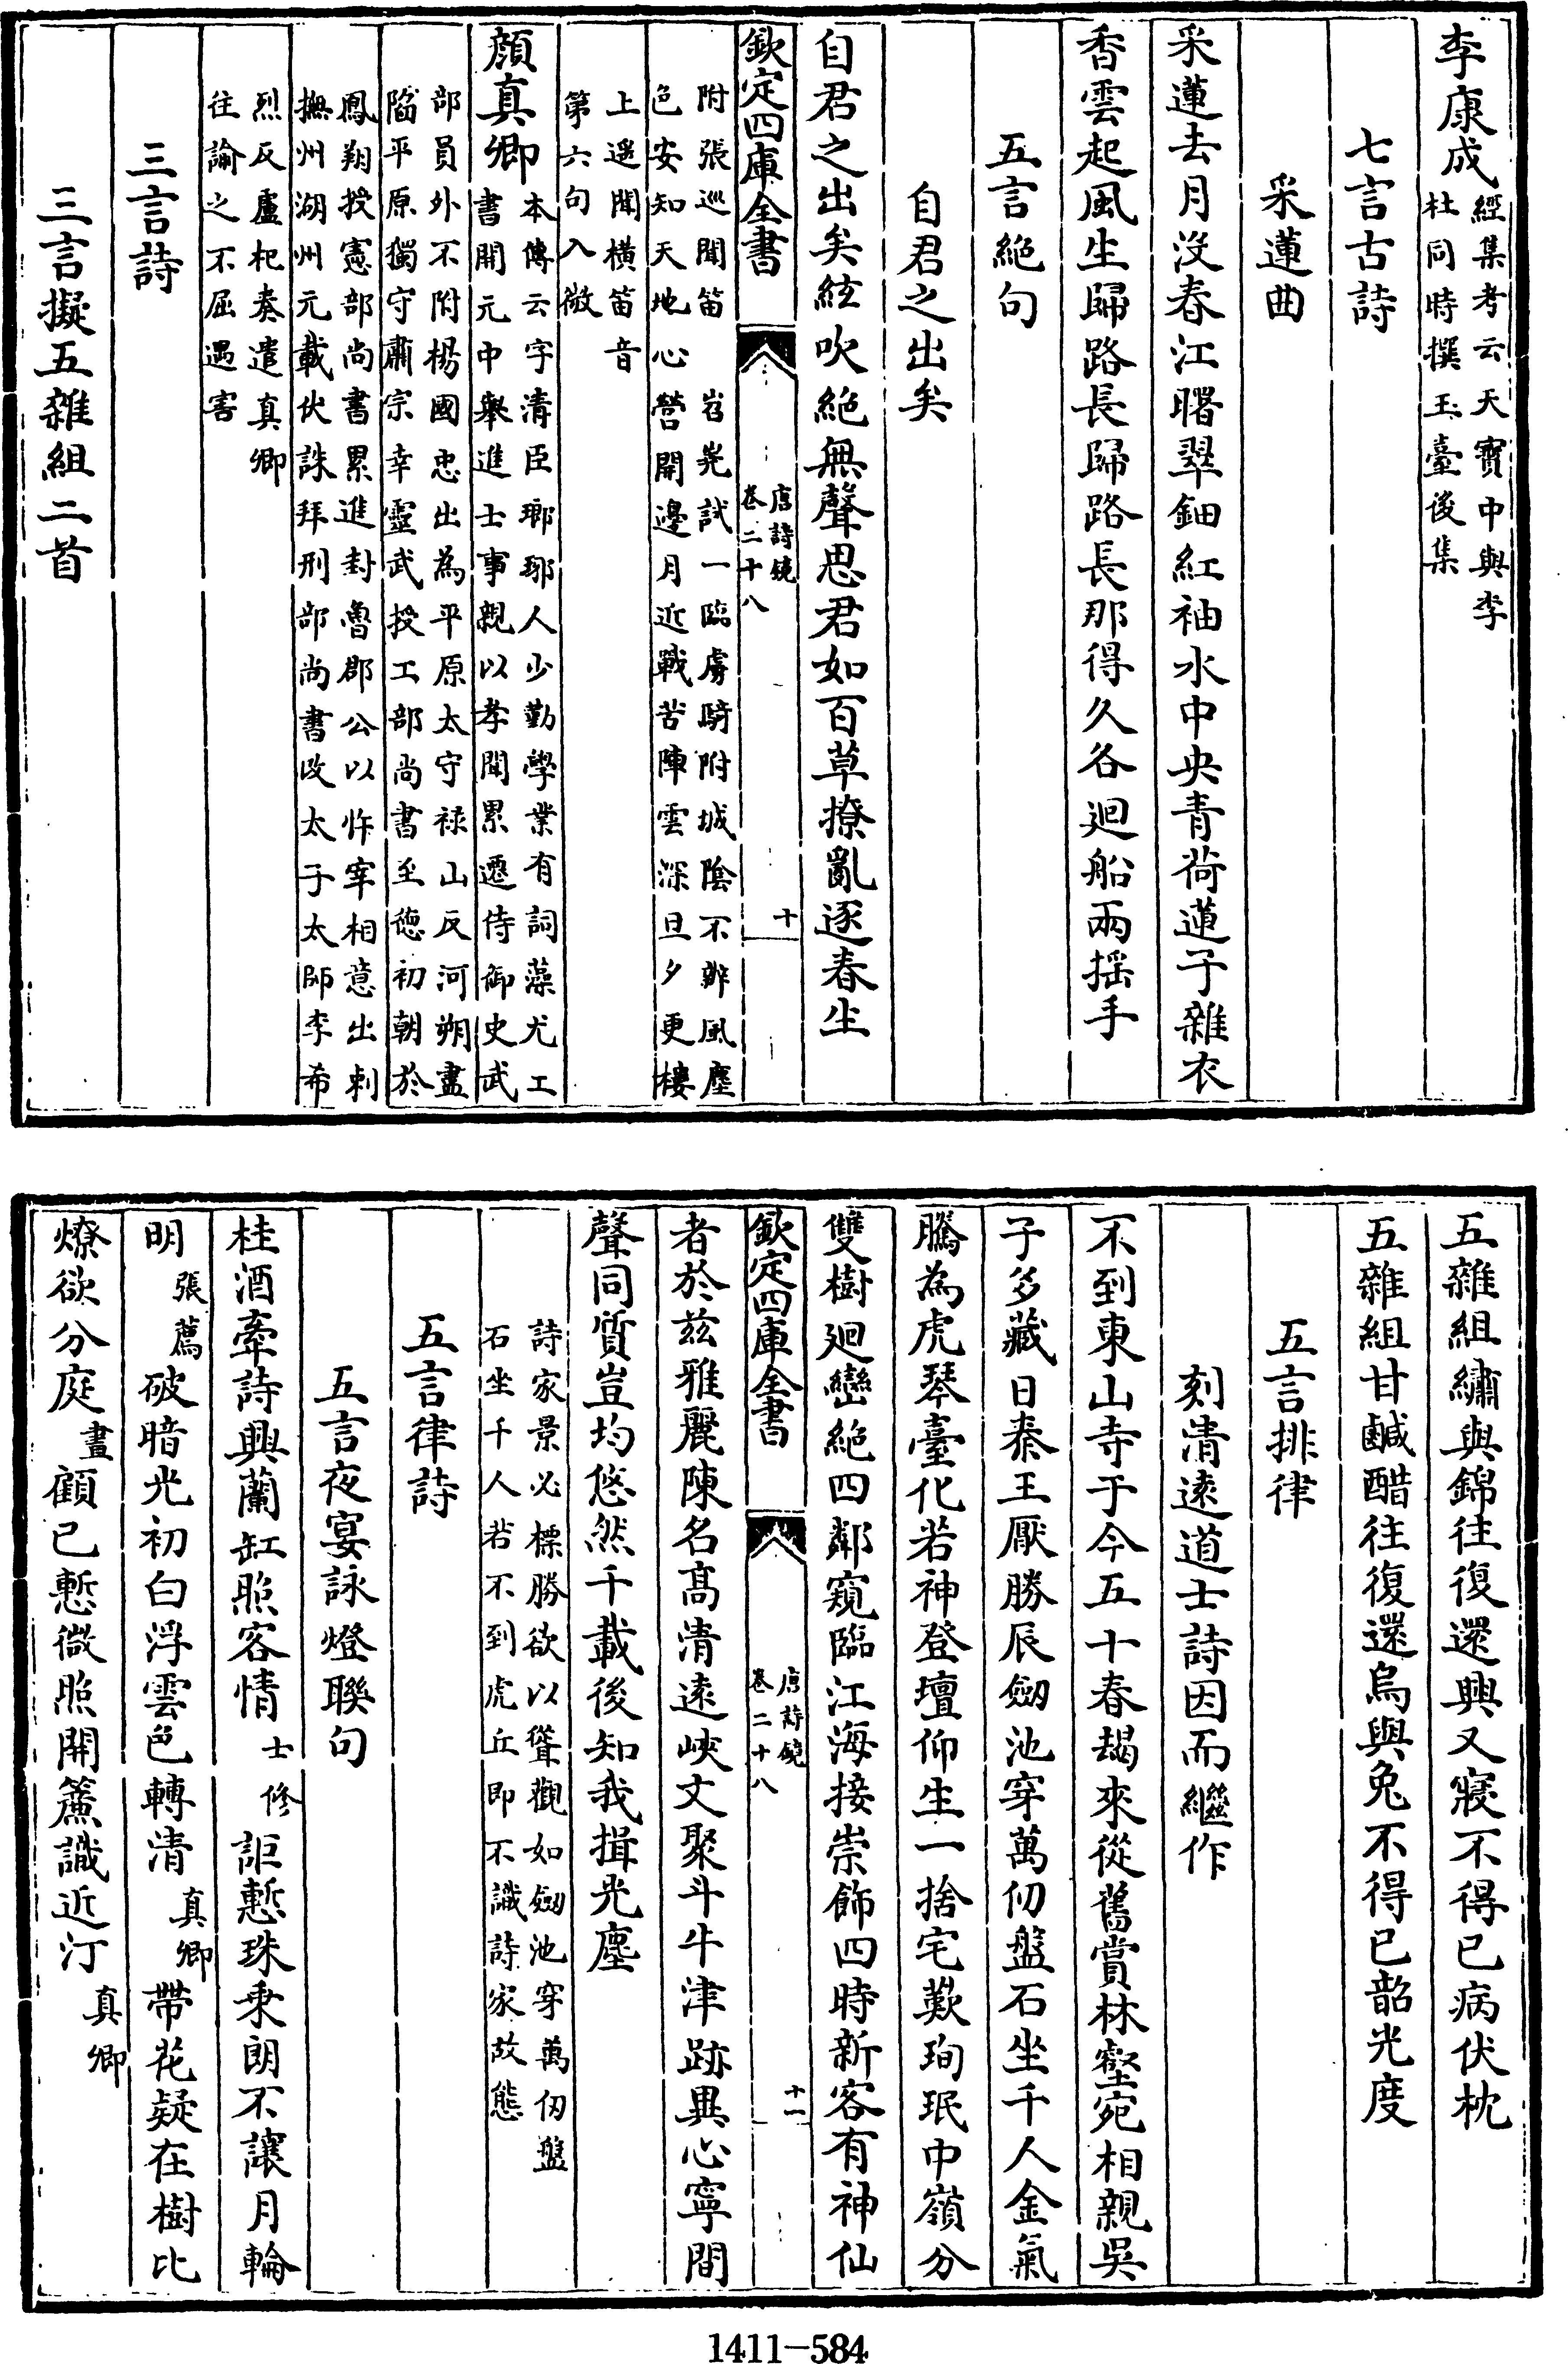 李康成經集考云天寶中與李杜同時撰玉臺後集
七言古詩
采蓮曲
采蓮去月沒春江曙翠鈿紅袖水中央青荷蓮子雜衣
香雲起風生歸路長歸路長那得久各迴船兩搖手
五言絶句
自君之出矣
自君之出矣絃吹絶無聲思君如百草撩亂逐春生
欽定四庫全書
唐詩鏡
卷二十八
十
附張巡聞笛 岧嶤試一臨虜騎附城陰不辨風塵
色安知天地心營開邊月近戰苦陣雲深旦夕更樓
上遥聞横笛音
第六句入微
顔真卿本傳云字清臣瑯琊人少勤學業有詞藻尤工
書開元中舉進士事親以孝聞累遷侍御史武
部員外不附楊國忠出為平原太守禄山反河朔盡
陷平原獨守肅宗幸靈武授工部尚書至德初朝於
鳳翔授憲部尚書累進封魯郡公以忤宰相意出刺
撫州湖州元載伏誅拜刑部尚書改太子太師李希
烈反盧杞奏遣真卿
往諭之不屈遇害
三言詩
三言擬五雜組二首
五雜組繡與錦往復還興又寢不得已病伏枕
五雜組甘鹹醋往復還烏與兔不得已韶光度
五言排律
刻清遠道士詩因而繼作
不到東山寺于今五十春朅來從舊賞林壑宛相親吳
子多藏日秦王厭勝辰劒池穿萬仞盤石坐千人金氣
騰為虎琴臺化若神登壇仰生一捨宅歎珣珉中嶺分
雙樹迴巒絶四鄰窺臨江海接崇飾四時新客有神仙
欽定四庫全書
唐詩鏡
卷二十八
十一
者於兹雅麗陳名髙清遠峽文聚斗牛津跡異心寧間
聲同質豈均悠然千載後知我揖光塵
詩家景必標勝欲以聳觀如劒池穿萬仞盤
石坐千人若不到虎丘即不識詩家故態
五言律詩
五言夜宴詠燈聯句
桂酒牽詩興蘭缸照客情士修詎慙珠乘朗不讓月輪
明張薦破暗光初白浮雲色轉清真卿帶花疑在樹比
燎欲分庭晝顧已慙微照開簾識近汀真卿
1411—584